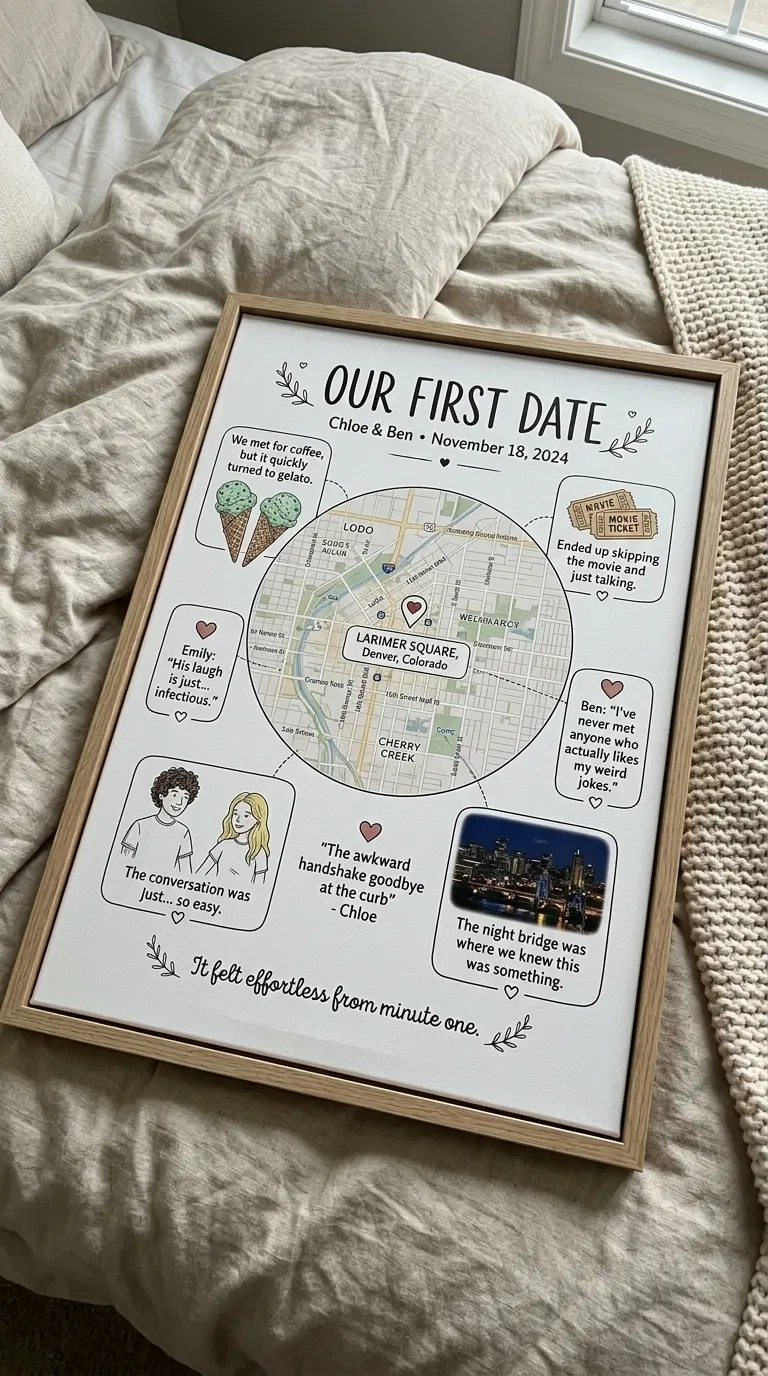 OUR FIRST DATE
Chloe & Ben • November 18, 2024
We met for coffee,
but it quickly
turned to gelato.
MOVIE
TICKET
Ended up skipping
the movie and
just talking.
LODO
LARIMER SQUARE,
Denver, Colorado
CHERRY
CREEK
Emily:
"His laugh
is just...
infectious."
Ben: "I've
never met
anyone who
actually likes
my weird
jokes."
The conversation was
just... so easy.
"The awkward
handshake goodbye
at the curb"
- Chloe
The night bridge was
where we knew this
was something.
It felt effortless from minute one.